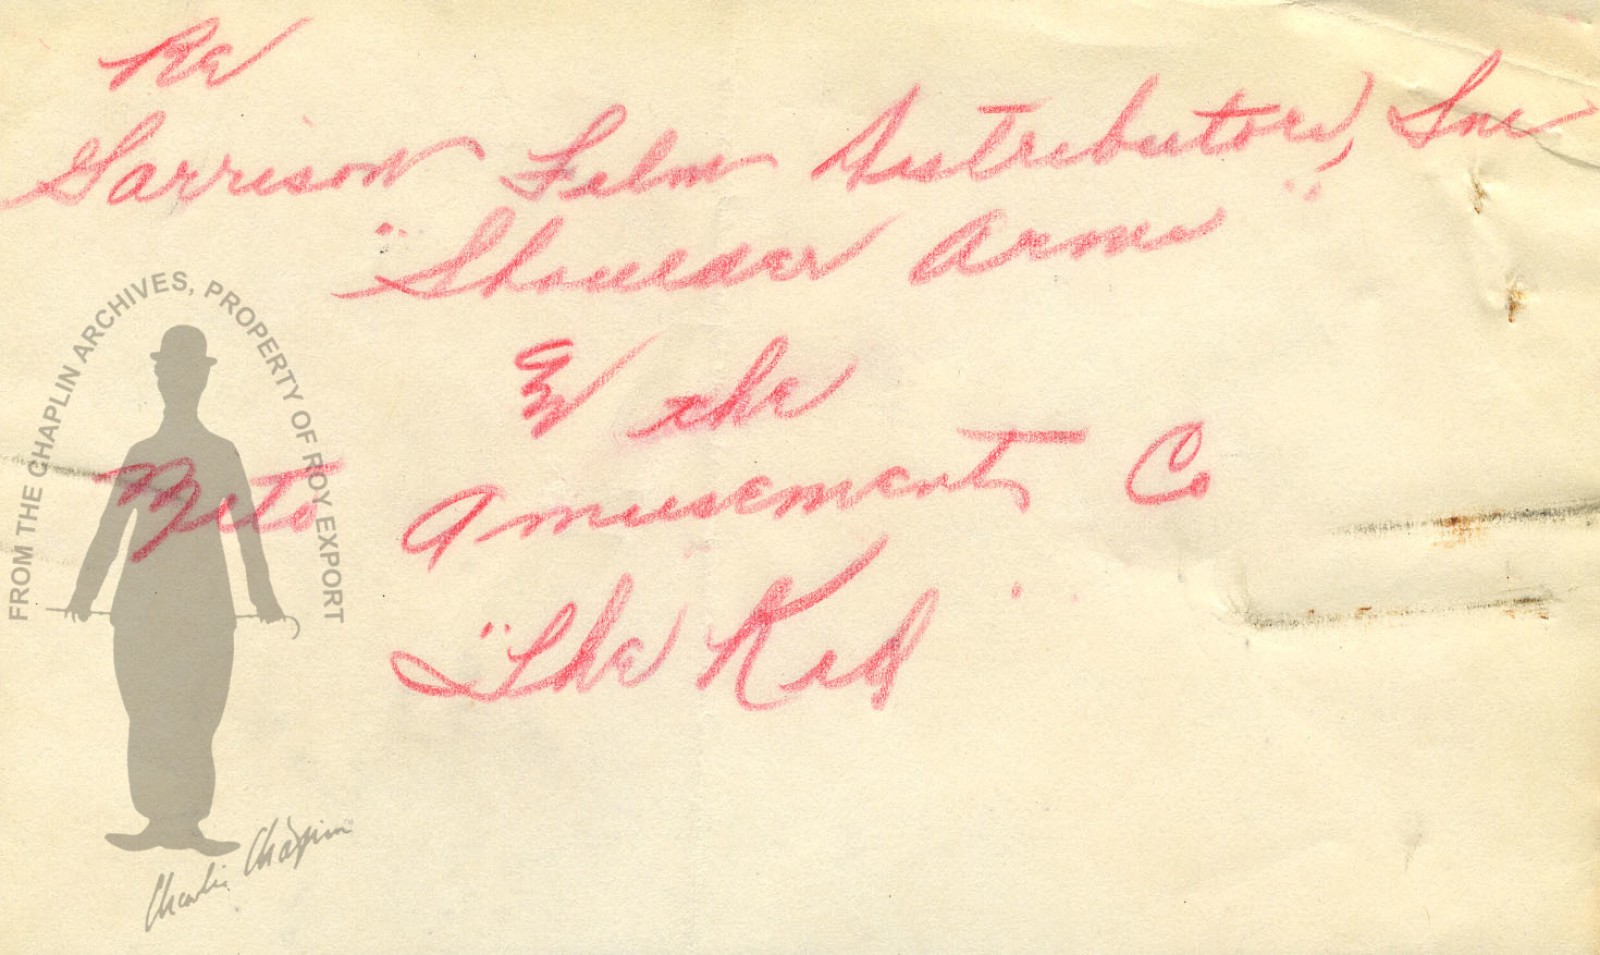 Re
Garrison Film Distributors, Inc
"Shoulder Arms"
& the
Meto Amusement Co
"The Kid"
FROM THE CHAPLIN ARCHIVES, PROPERTY OF ROY EXPORT
Charlie Chaplin